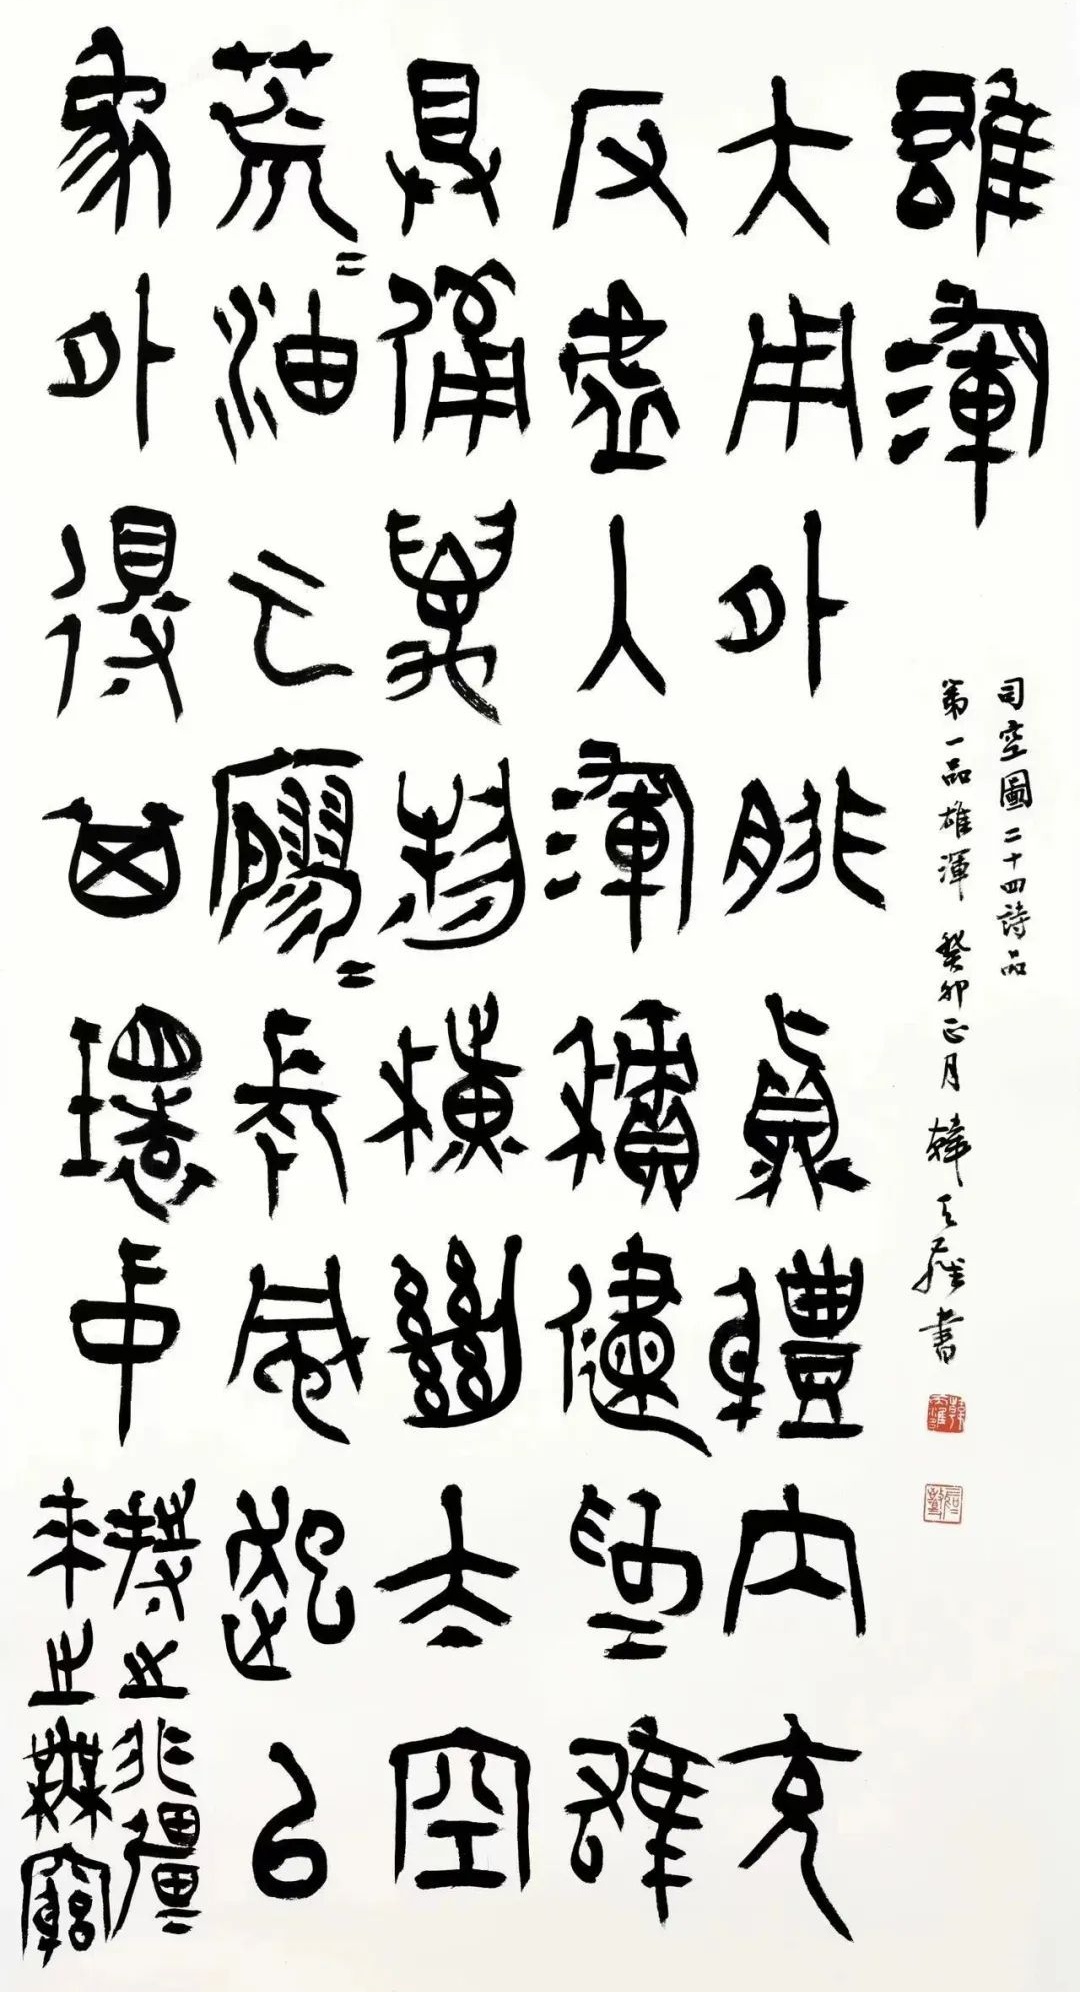 雄渾
司空圖二十四詩品
第一品雄渾 癸卯正月 韓天雍書
大用外腓真體內充
反虛入渾積健為雄
具備萬物橫絕太空
荒〻油云寥〻長風超以
象外得其環中
持之非彊
來之無窮